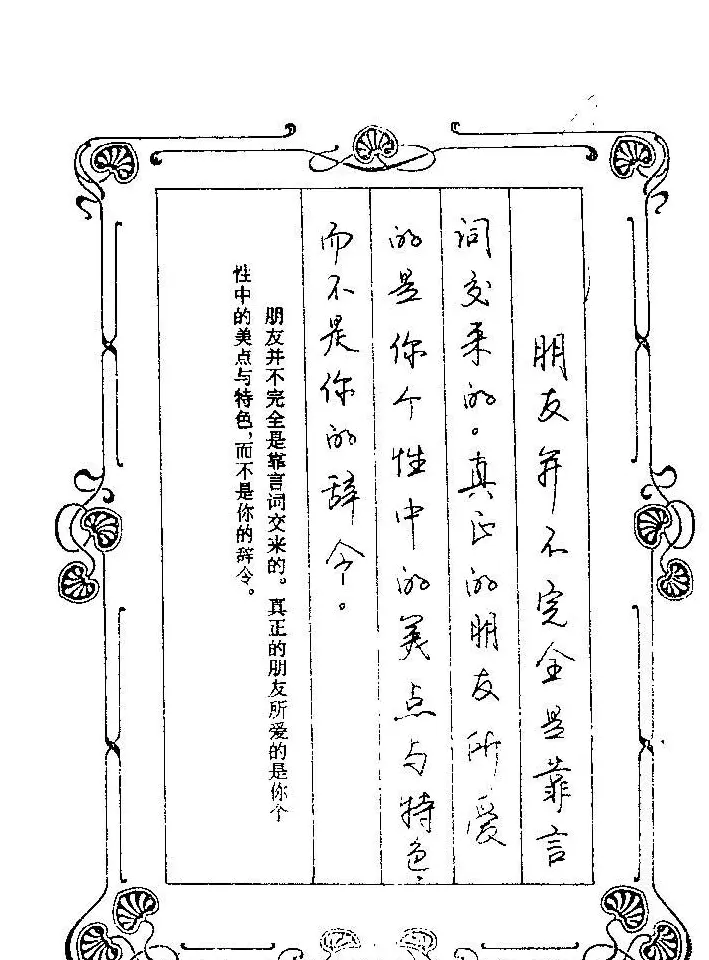 朋友并不完全是靠言
词交来的。真正的朋友所爱
的是你个性中的美点与特色，
而不是你的辞令。
朋友并不完全是靠言词交来的。真正的朋友所爱的是你个
性中的美点与特色，而不是你的辞令。